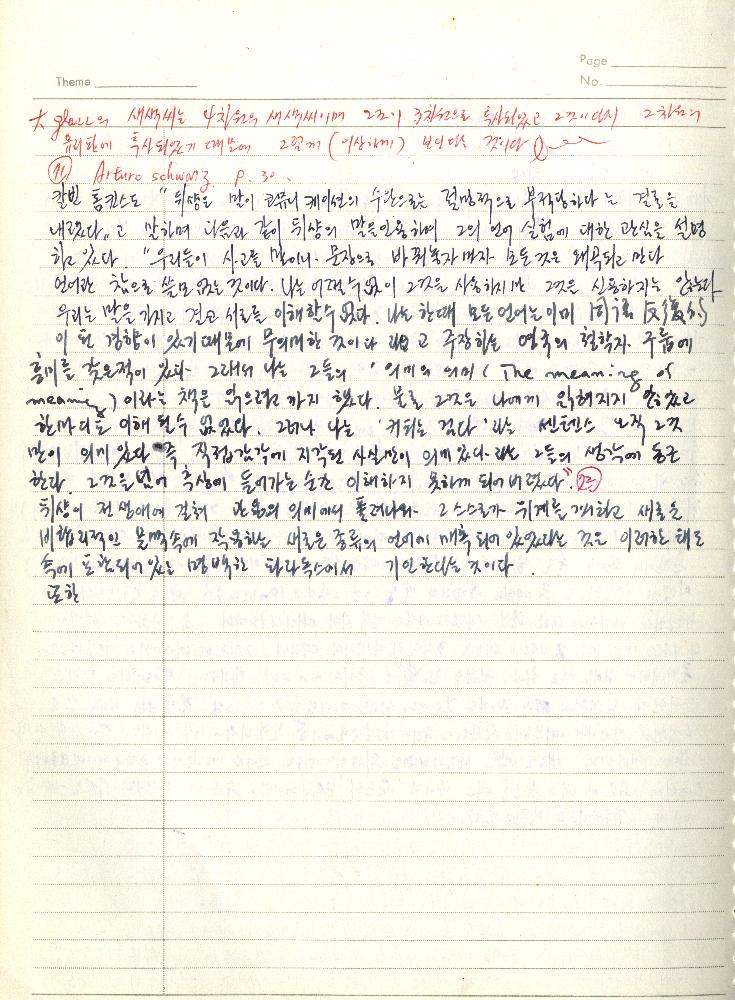 Page
Theme
No.
大 glass의 새색씨는 4차원의 새색씨이며 그것이 3차원으로 투사되었고 그것이 다시 2차원의
유리판에 투사되었기 때문에 그렇게 (이상하게) 보인다는 것이다
Arturo schwarz. p. 30.
칼빈 톰킨스도 "뒤샹은 말이 코뮤니케이션의 수단으로는 절망적으로 부적당하다는 결론을
내렸다."고 말하며 다음과 같이 뒤샹의 말을 인용하며 그의 언어 실험에 대한 관심을 설명
하고 있다. "우리들이 사고를 말이나 문장으로 바꿔놓자마자 모든것은 왜곡되고 만다
언어란 참으로 쓸모없는 것이다. 나는 어쩔수없이 그것을 사용하지만 그것을 신용하지는 않는다
우리는 말을 가지고 결코 서로를 이해할수 없다. 나는 한때 모든 언어는 이미 同語反復的
이 된 경향이 있기때문에 무의미한 것이다 라고 주장하는 영국의 철학자 그룹에
흥미를 갖은적이 있다. 그래서 나는 그들의 '의미의 의미 (The meaning of
meaning)이라는 책을 읽으려고까지 했다. 물론 그것은 나에게 읽혀지지 않았고
한마디를 이해할수 없었다. 그러나 나는 '커피는 검다'라는 센텐스 오직 그것
만이 의미있다 즉 직접감각에 지각된 사실만이 의미있다라는 그들의 생각에 동감
한다. 그것을 넘어 추상에 들어가는 순간 이해하지 못하게 되어버렸다".
뒤샹이 전생애에 걸쳐 관용의 의미에서 풀려나와 그 스스로가 위계를 개하고 새로운
비합리적인 문맥속에 작용하는 새로운 종류의 언어에 매혹되어있었다는 것은 이러한 태도
속에 포함되어있는 명백한 파라독스에서 기인한다는 것이다.
또한